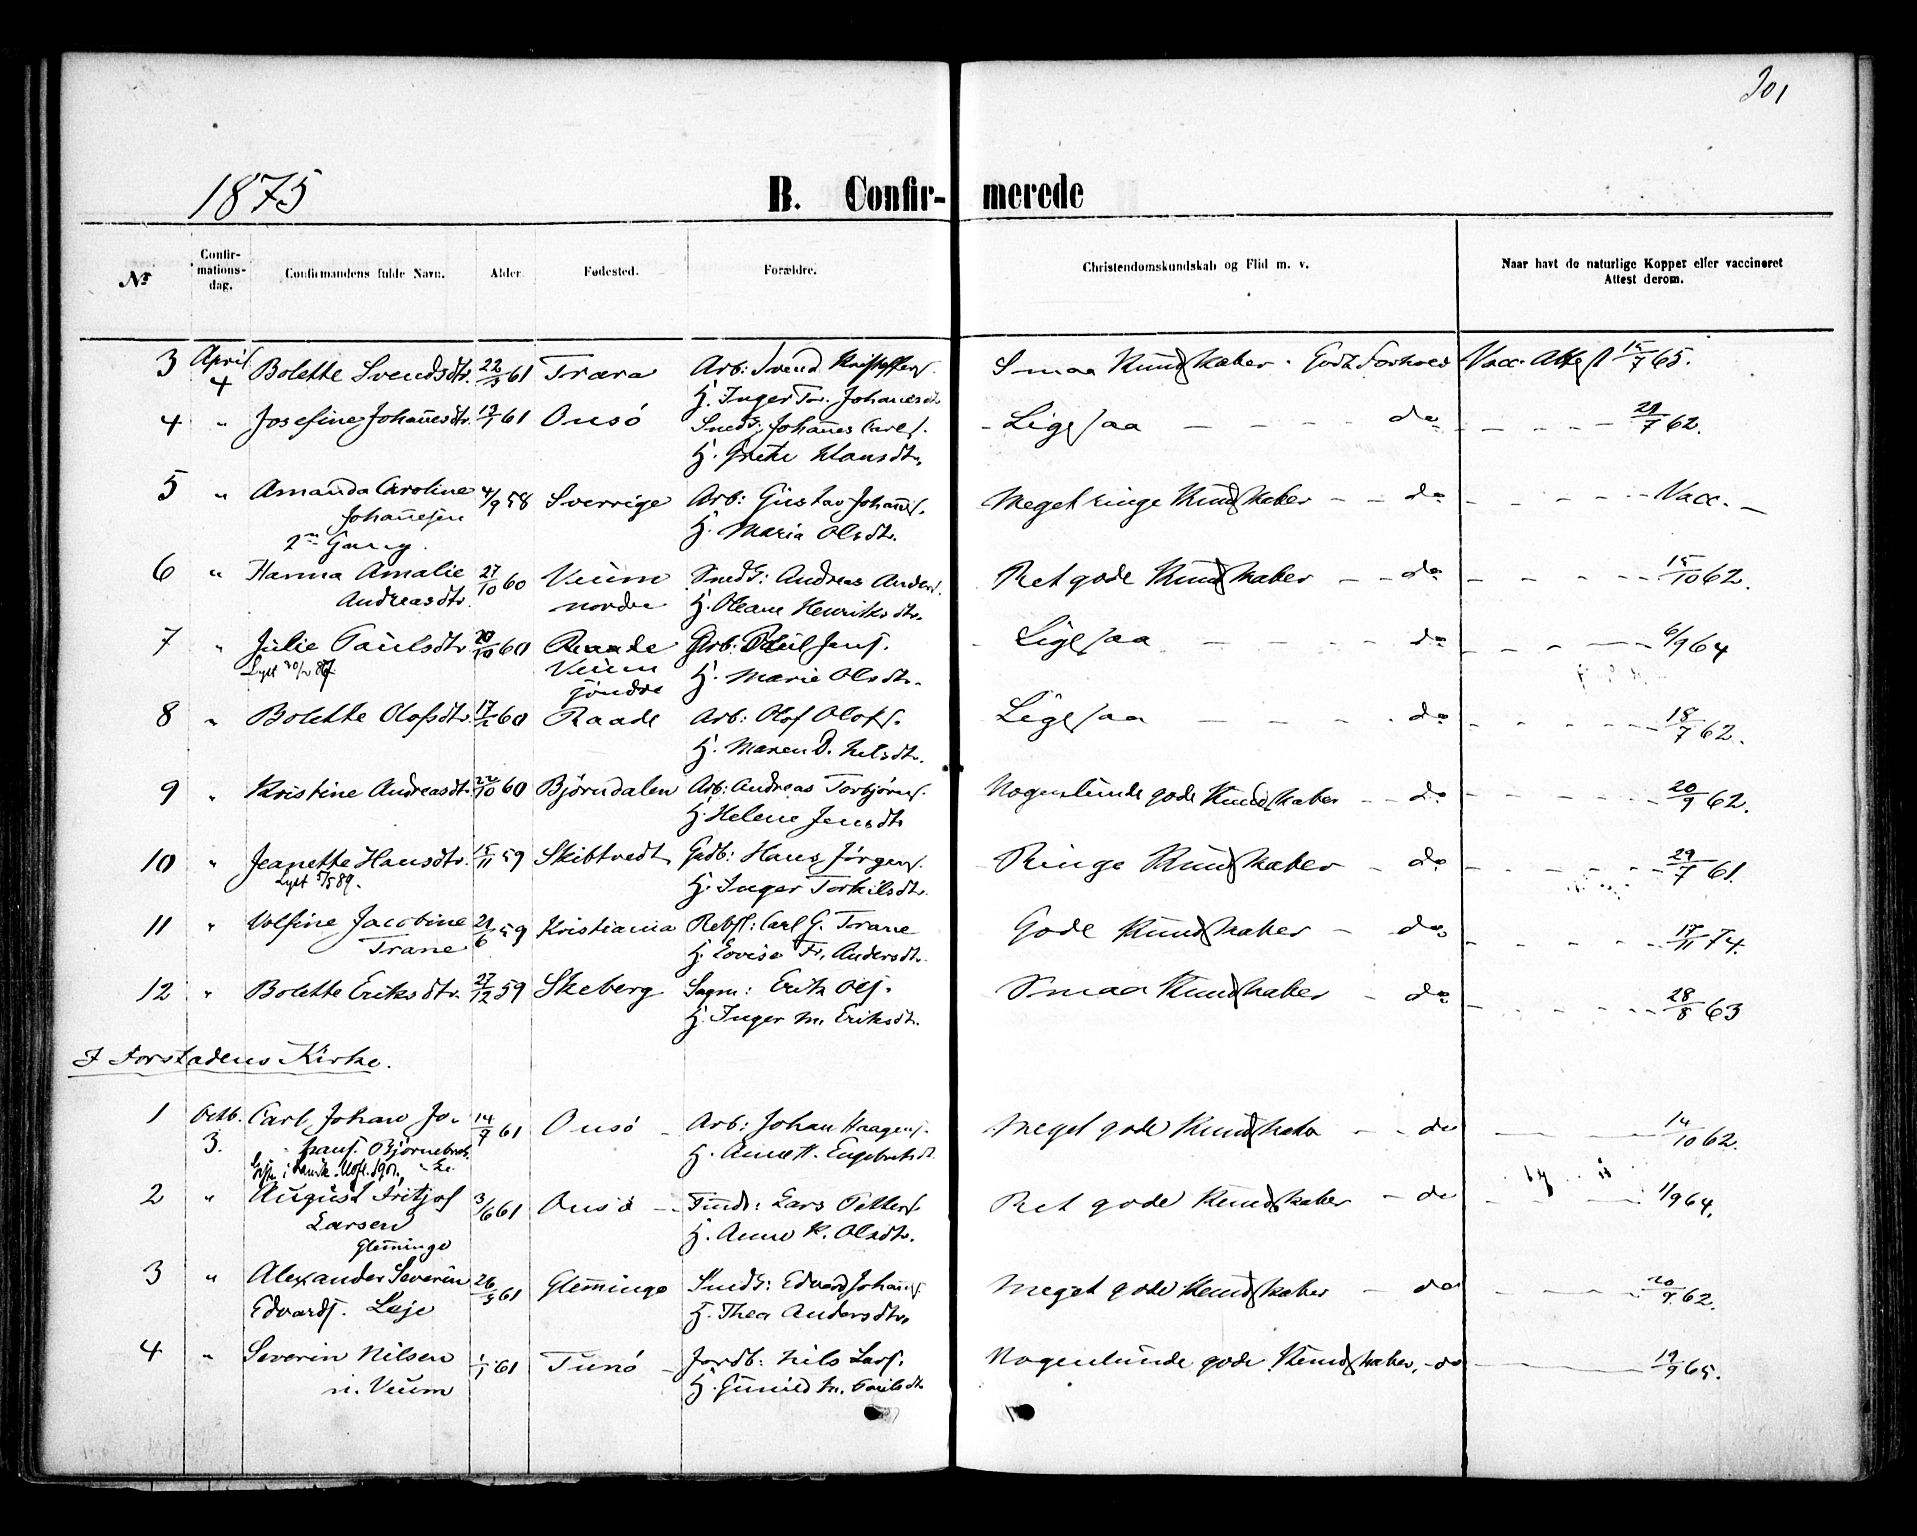 301
1875
B. Confir- merede
No
Confir-
mations-
dag.
Confirmandens fulde Navn.
Alder
Fødested.
Forældre.
Christendomskundskab og Flid m. v.
Naar havt de naturlige Kopper eller vaccineret
Attest derom.
3 April 4 Bolette Svendsdtr. 22/3 61 Træra Arb: Svend Kristoffers. Smaa Kundskaber. Godt Forhold Vacc. Attest 15/7 65.
H. Inger Johannesdtr
4 " Josefine Johannesdtr. 61 Onsö Snedk: Johannes Carls. - Ligesaa - - - - do 21/7 62.
H. Grethe Hansdtr.
5 " Amanda Caroline 4/9 58 Sverrige Arb: Gustav Johanns. Meget ringe Kundskaber - - do - - - - Vacc. -
Johannesen H. Maria Olsdtr.
2den Gang.
6 " Hanna Amalie 27/10 60 Veum Snedk: Andreas Anders. Ret gode Kundskaber - - do - - - - 15/10 62.
Andreasdtr. nordre H. Oleane Henriksdtr.
7 " Julie Paulsdtr 20/10 60 Raade Arb: Paul Jens. Ligesaa - - - - do - - - - 6/9 64
Lyst 87 Veum H. Marie Olsdtr.
söndre
8 " Bolette Olofsdtr. 17/2 60 Raade Arb: Olof Olofs. Ligesaa - - - . do - - - - 18/7 62.
H. Maren D. Nilsdtr.
9 " Kristine Andreasdtr. 22/10 60 Björndalen Arb: Andreas Torbjörns. Nogenlunde gode Kundskaber - - do - - - - 20/9 62.
H. Helene Jensdtr
10 " Jeanette Hansdtr. 15/11 59 Skibtvedt Grdb: Hans Jörgens. Ringe Kundskaber - do - - - - 29/7 61.
Lyst 5/5 89. H. Inger Torkilsdtr.
11 " Volfine Jacobine 21/6 59 Kristiania Rebsl: Carl G. Trane Gode Kundskaber - do - - - - 17/11 74.
Trane H. Lovise Fr. Andersdtr.
12 " Bolette Eriksdtr. 27/12 59 Skeberg Sagm: Erik Ols. Smaa Kundskaber - do - - - - 28/8 63
H. Inger M. Eriksdtr.
I Forstadens Kirke.
1 Octb. 3. Carl Johan Jo- 14/7 61 Onsö - Arb: Johan Haagens. Meget gode Kundskaber - - do - - 14/10 62.
hans. Björnebek H. Anne H. Engebretsdt
2 " August Fritjof 3/6 61 Onsö - Tømb: Lars Petters. Ret gode Kundskaber - do - - - 11/9 64.
Larsen H. Anne K. Olsdtr.
Glemminge
3 " Alexander Severin 26/3 61 Glemminge Smed: Edvard Johanns. Meget gode Kundskaber - do - - - 20/9 62.
Edvards. Leje H. Thea Andersdtr.
4 " Severin Nilsen 1/1 61 Tunö - Jordb: Nils Lars. Nogenlunde gode Kundskaber. - do - - 19/9 65.
n. Veum H. Gunild M. Paulsdtr